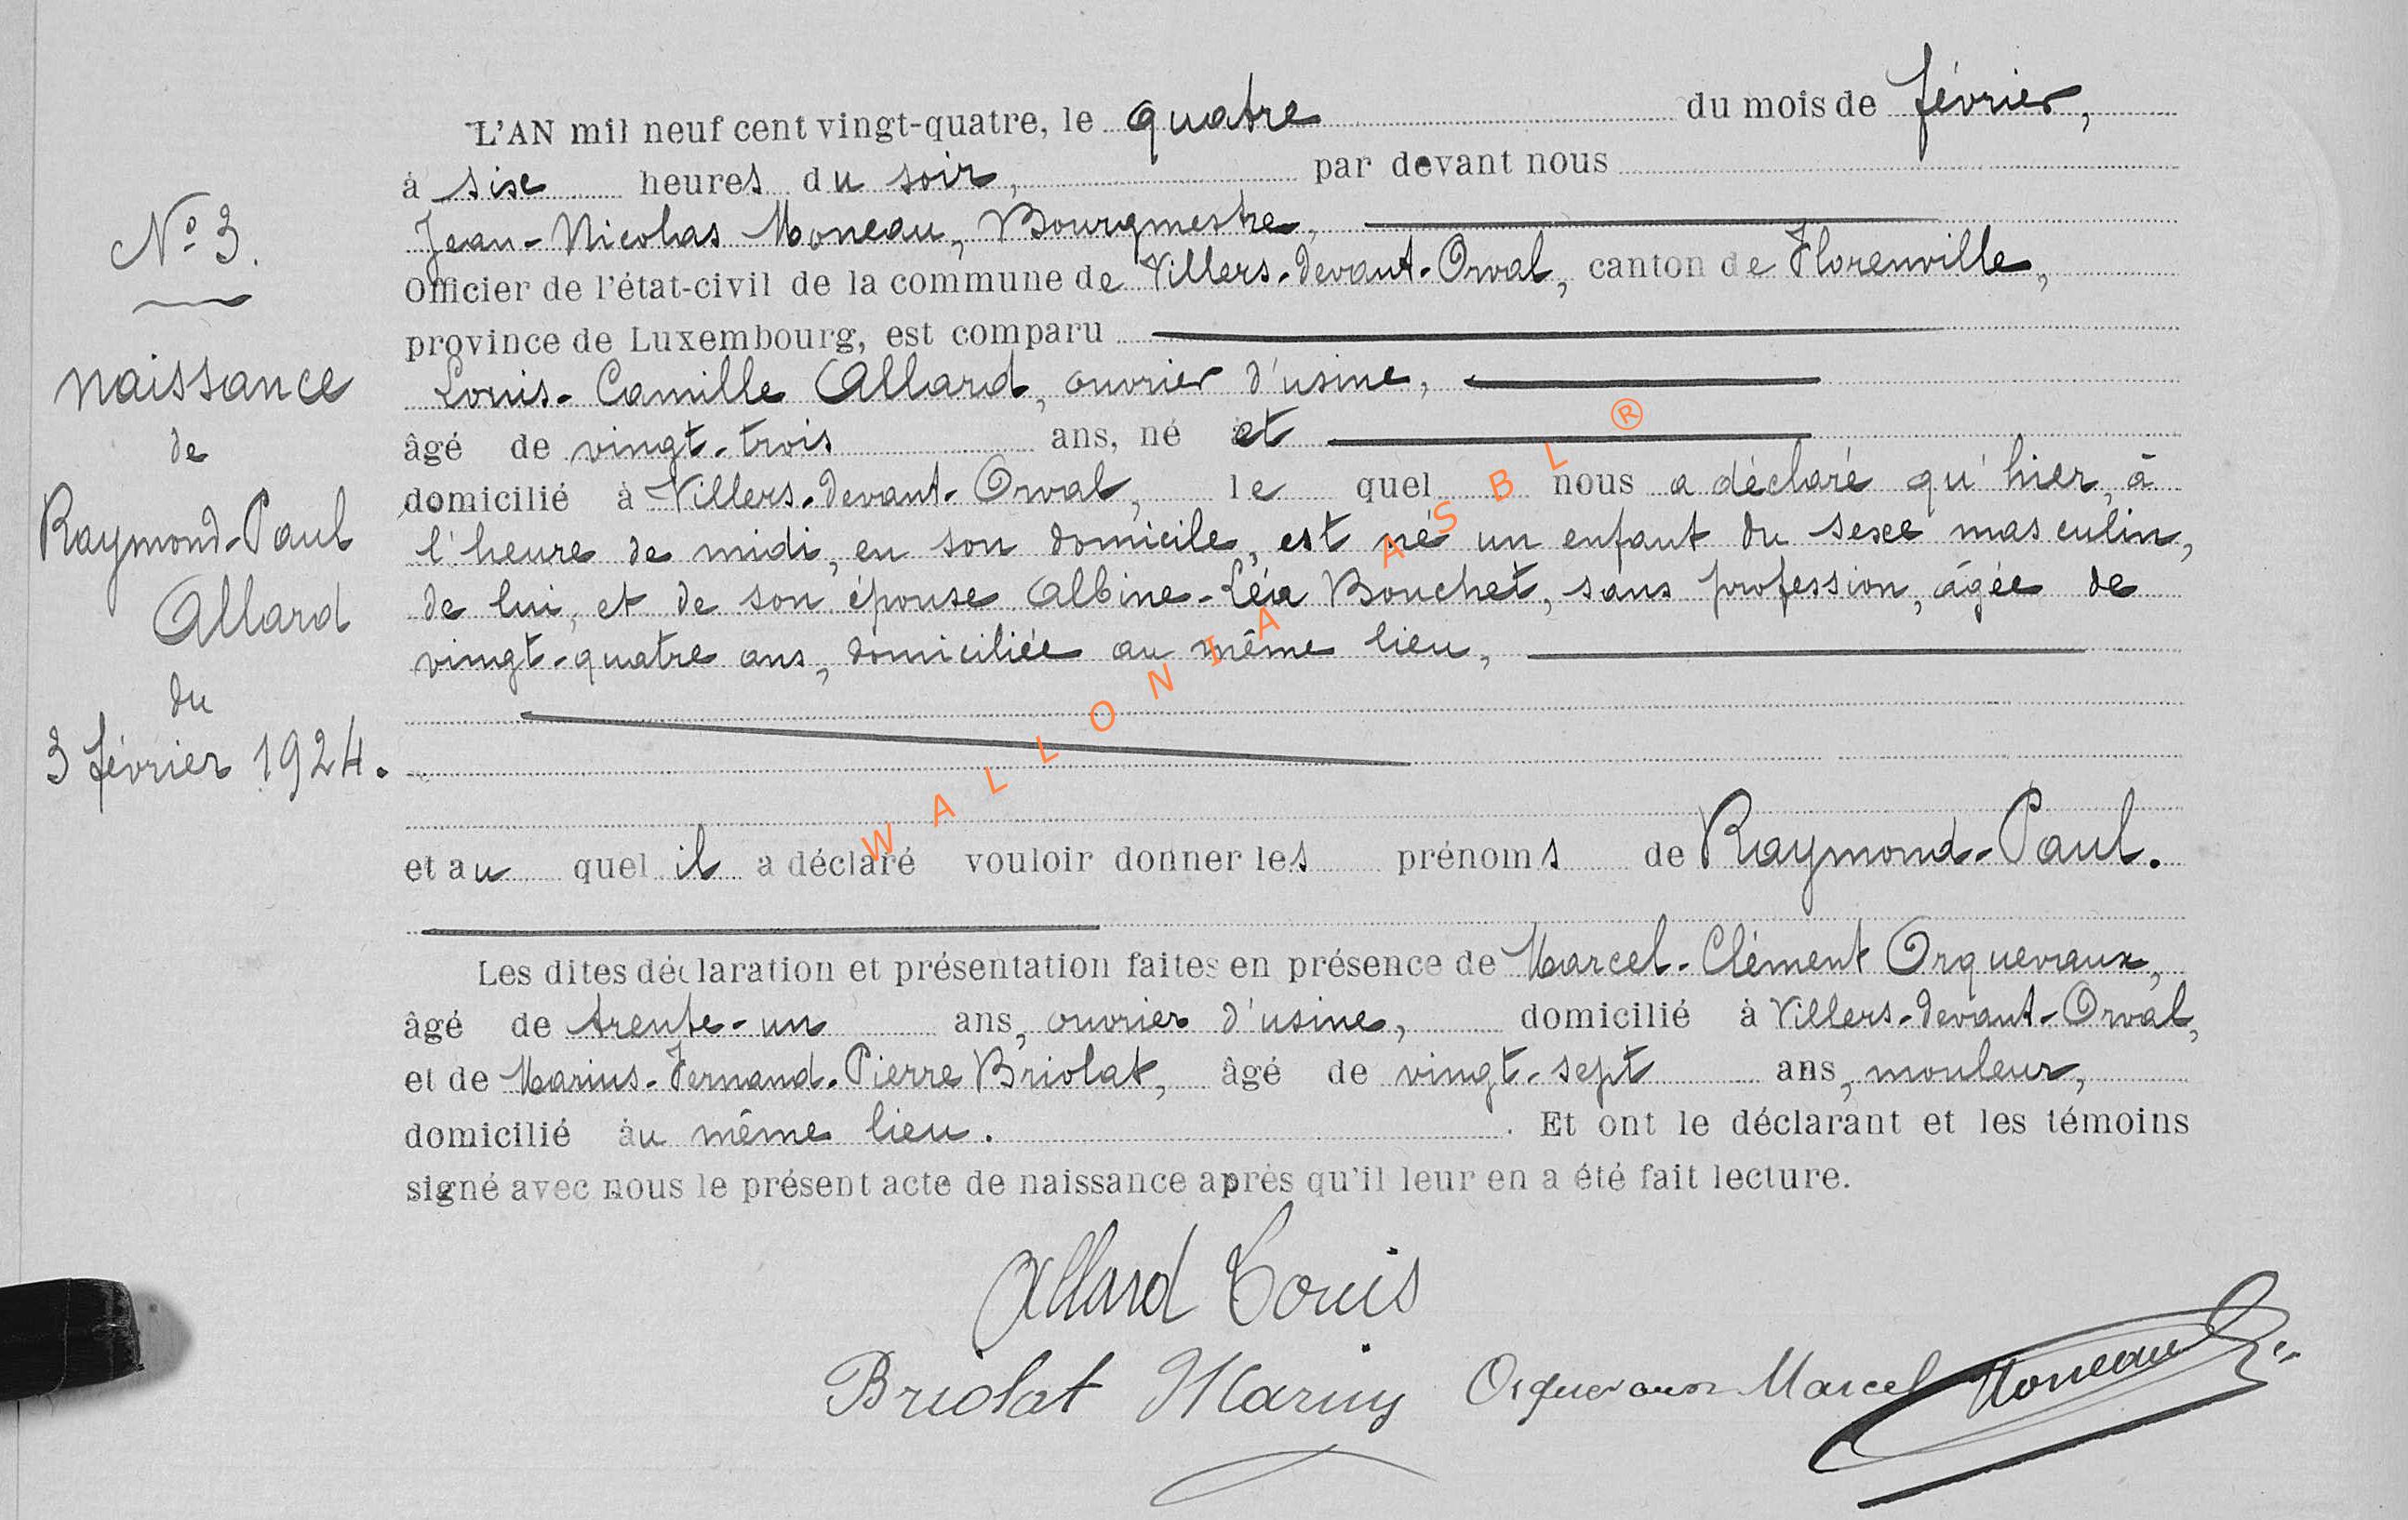 N° 3.
naissance
de
Raymond-Paul
Allard
du
3 février 1924.
L'AN mil neuf cent vingt-quatre, le quatre du mois de février,
à six heures du soir, par devant nous
Jean-Nicolas Moneau, Bourgmestre,
Officier de l'état-civil de la commune de Villers-devant-Orval, canton de Florenville,
province de Luxembourg, est comparu
Louis-Camille Allard, ouvrier d'usine,
âgé de vingt-trois ans, né et
domicilié à Villers-devant-Orval, le quel nous a déclaré qu'hier, à
l'heure de midi, en son domicile, est né un enfant du sexe masculin,
de lui, et de son épouse Albine-Léa Bouchet, sans profession, âgée de
vingt-quatre ans, domiciliée au même lieu,
et au quel il a déclaré vouloir donner les prénoms de Raymond-Paul.
Les dites déclaration et présentation faites en présence de Marcel-Clément Orquevaux,
âgé de trente-un ans, ouvrier d'usine, domicilié à Villers-devant-Orval,
et de Marius-Fernand-Pierre Briolat, âgé de vingt-sept ans, mouleur,
domicilié au même lieu. Et ont le déclarant et les témoins
signé avec nous le présent acte de naissance après qu'il leur en a été fait lecture.
Allard Louis
Briolat Marius Orquevaux Marcel Moneau
WALLONIA ASBL ®